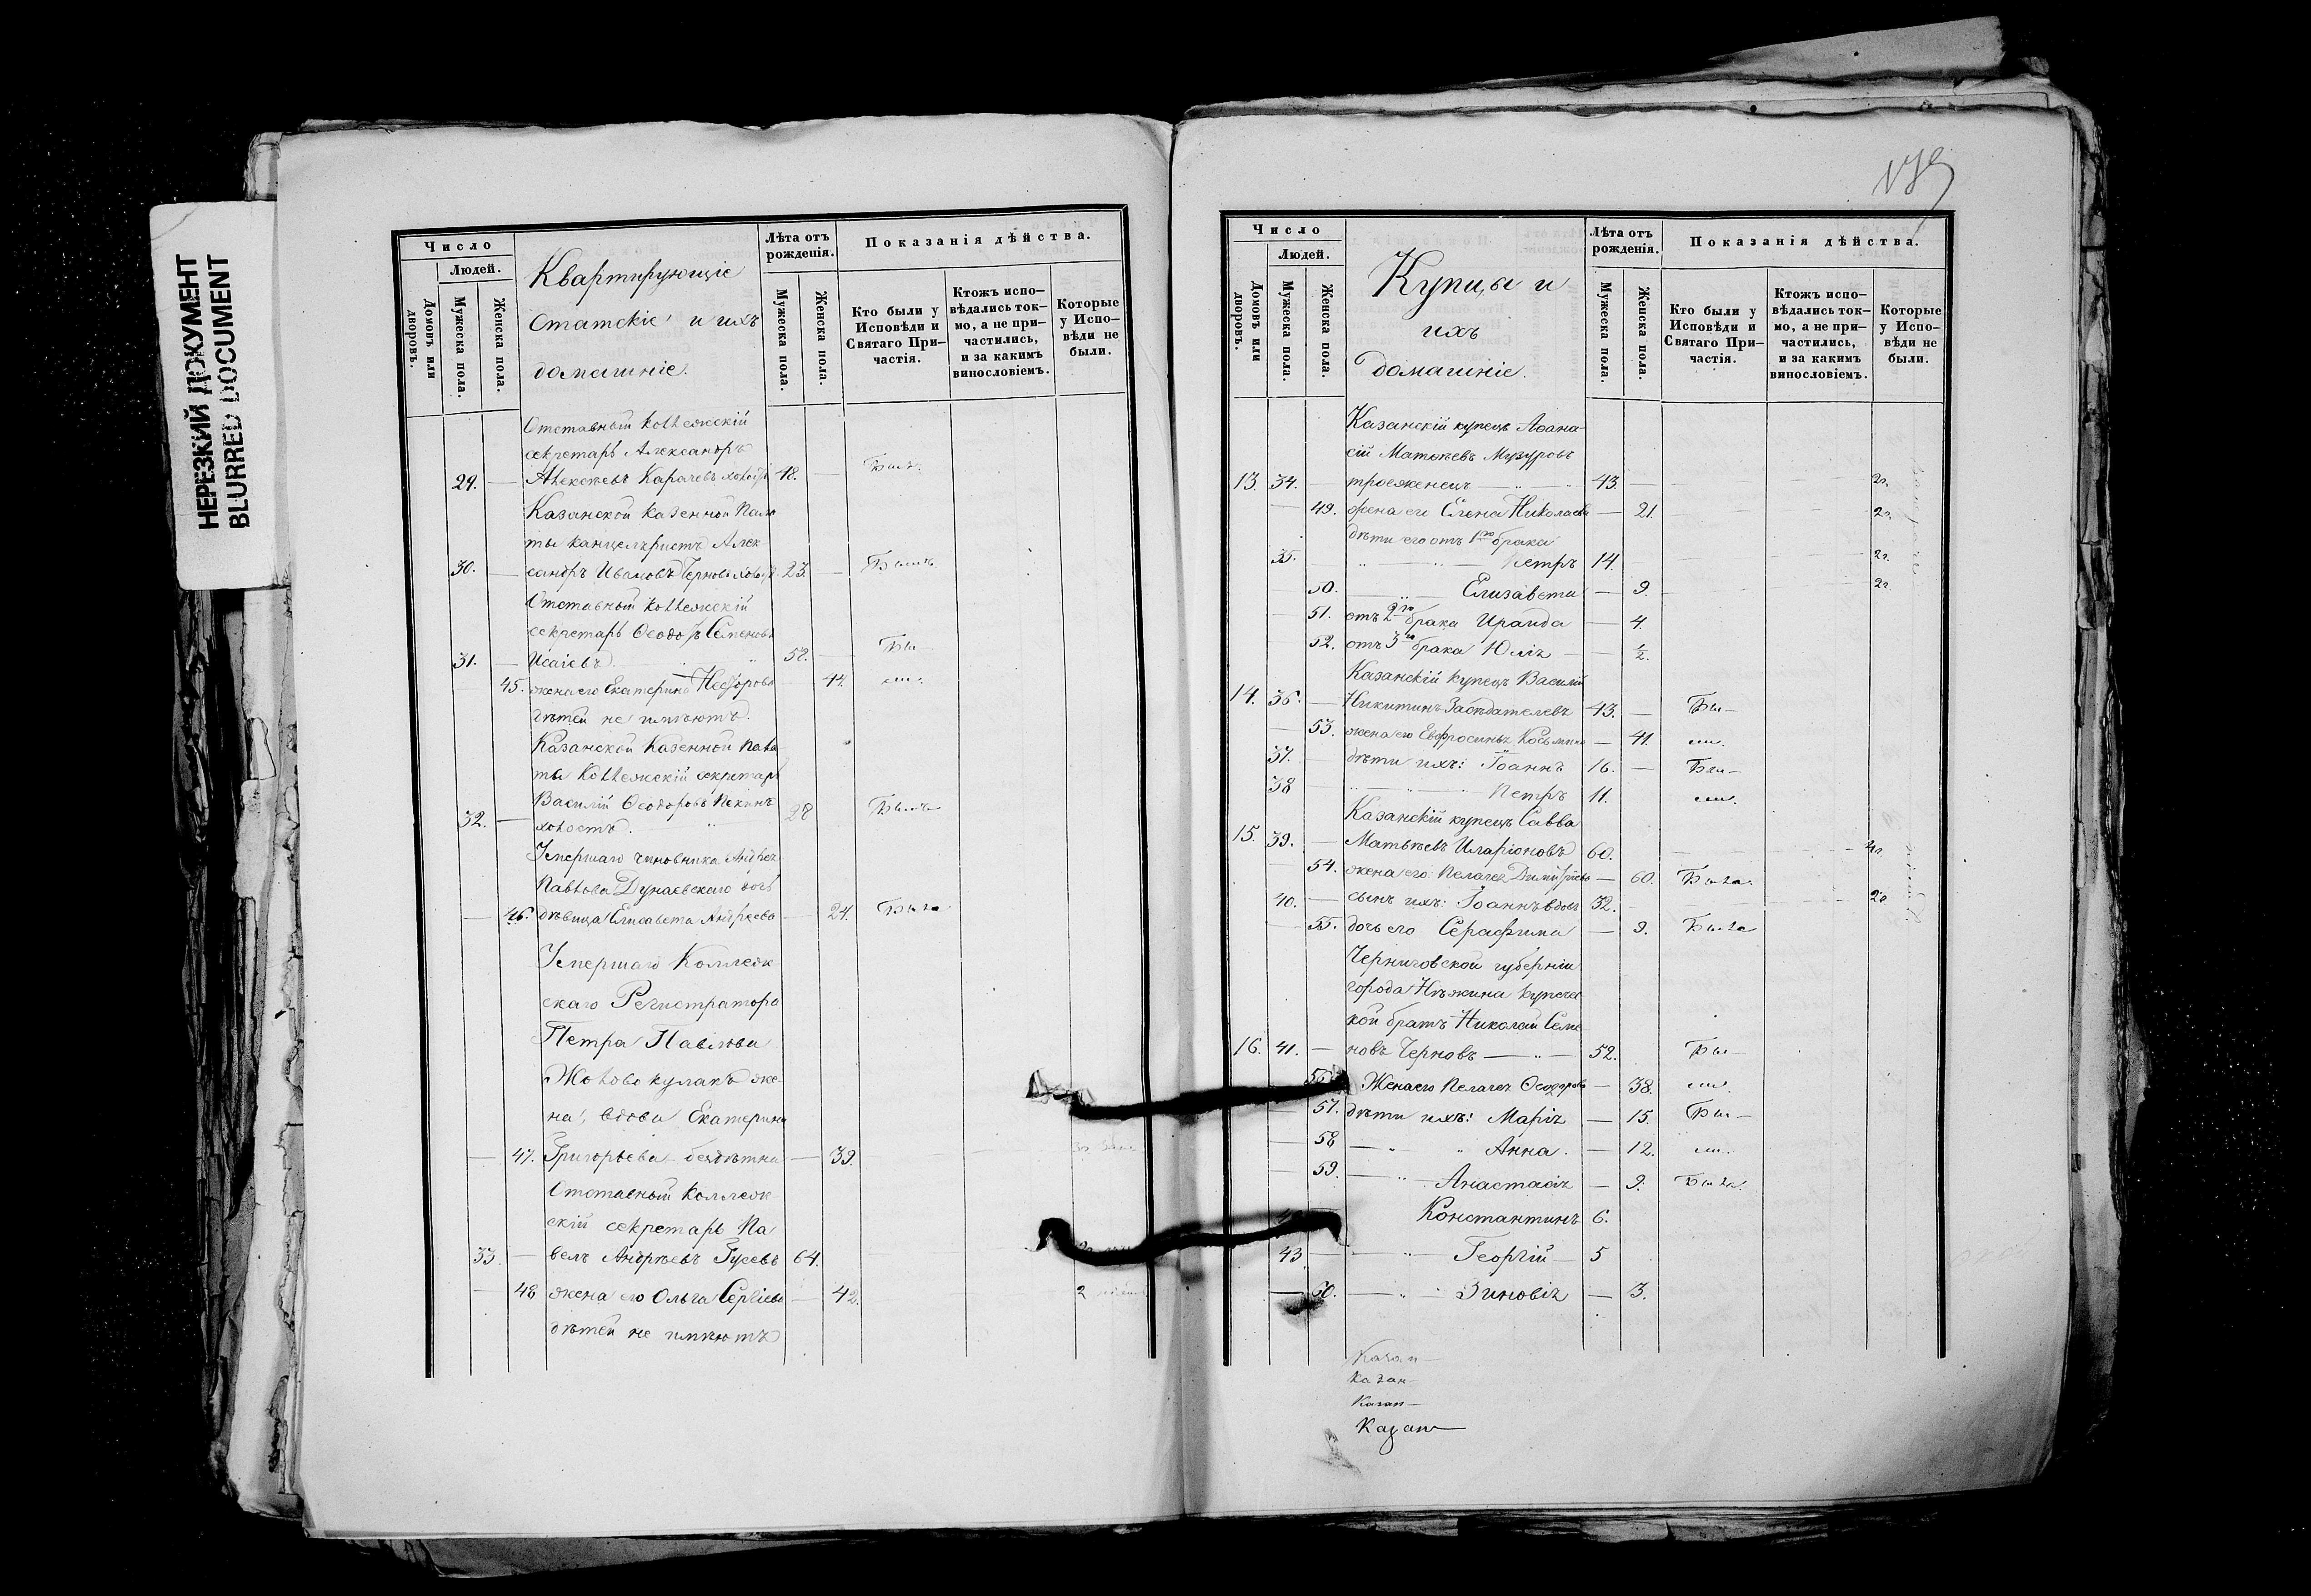 НЕРЕЗКИЙ ДОКУМЕНТ
BLURRED DOCUMENT
Число
Людей.
Домовъ или дворовъ.
Мужеска пола.
Женска пола.
Квартирующіе
Статскіе и ихъ
домашніе.
Лѣта отъ рожденія.
Мужеска пола.
Женска пола.
Показанія дѣйства.
Кто были у Исповѣди и Святаго Причастія.
Ктожъ исповѣдались токмо, а не причастились, и за какимъ винословіемъ.
Которые у Исповѣди не были.
Отставный Коллежскій
секретарь Александръ
29. — Алексѣевъ Карачевъ холостъ 48. — Былъ.
Казанской Казенной Пала
ты канцеляристъ Алек
30. — сандръ Ивановъ Черновъ холостъ 23. — Былъ
Отставный Коллежскій
секретарь Ѳеодоръ Семеновъ
31. — Исаіевъ 52. — Бы—
45. жена его Екатерина Несторова — 44. ли.
дѣтей не имѣютъ.
Казанской Казенной Пала
ты Коллежскій секретарь
Василій Ѳеодоровъ Пекинъ
32. — холостъ. 28 Былъ
Умершаго чиновника Андрея
Павлова Дунаевскаго дочь
— 46. дѣвица Елисавета Андреева — 24. Была
Умершаго Коллеж
скаго Регистратора
Петра Павлова
Жена, вдова Екатерина
— 47. Григорьева — бездѣтна — 39.
Отставный Коллеж
скій секретарь Па
33. — велъ Андреевъ Гусевъ 64.
— 48 жена его Ольга Сергіева — 42. 2
дѣтей не имѣютъ
179
Число
Людей.
Домовъ или дворовъ.
Мужеска пола.
Женска пола.
Купцы и
ихъ
домашніе.
Лѣта отъ рожденія.
Мужеска пола.
Женска пола.
Показанія дѣйства.
Кто были у Исповѣди и Святаго Причастія.
Ктожъ исповѣдались токмо, а не причастились, и за какимъ винословіемъ.
Которые у Исповѣди не были.
Казанскій купецъ Аѳана
сій Матвѣевъ Музуровъ
13. 34. — троеженецъ — 43. — 2г.
— 49. жена его Елена Николаева — 21. 2г.
дѣти его отъ 1го брака
35. Петръ 14. 2г.
— 50. Елизавета — 9. 2г.
— 51. отъ 2го брака Ираида — 4.
— 52. отъ 3го брака Юлія — ½.
Казанскій купецъ Василій
14. 36. — Никитинъ Засѣдателевъ 43. — Бы—
— 53. жена его Евфросинья Косьмина — 41. ли.
37. — дѣти ихъ: Іоаннъ 16. — Бы—
38 Петръ 11. ли.
Казанскій купецъ Савва
15. 39. — Матвѣевъ Иларіоновъ 60. 2г.
— 54. жена его Пелагея Димитріева — 60. Была.
40. — сынъ ихъ: Іоаннъ вдовъ 32. 2г
— 55. дочь его Серафима — 9. Была
Черниговской губерніи
города Нѣжина купечес
кой братъ Николай Семе
16. 41. — новъ Черновъ — 52. Бы—
56. Жена его Пелагея Ѳеодорова — 38. ли.
— 57. дѣти ихъ: Марія — 15. Бы—
— 58 Анна. — 12. ли.
— 59. Анастасія — 9. Была.
Константинъ 6.
43 Георгій 5
— 60. Зиновія — 3.
Казан—
Казан—
Казан—
Казан—